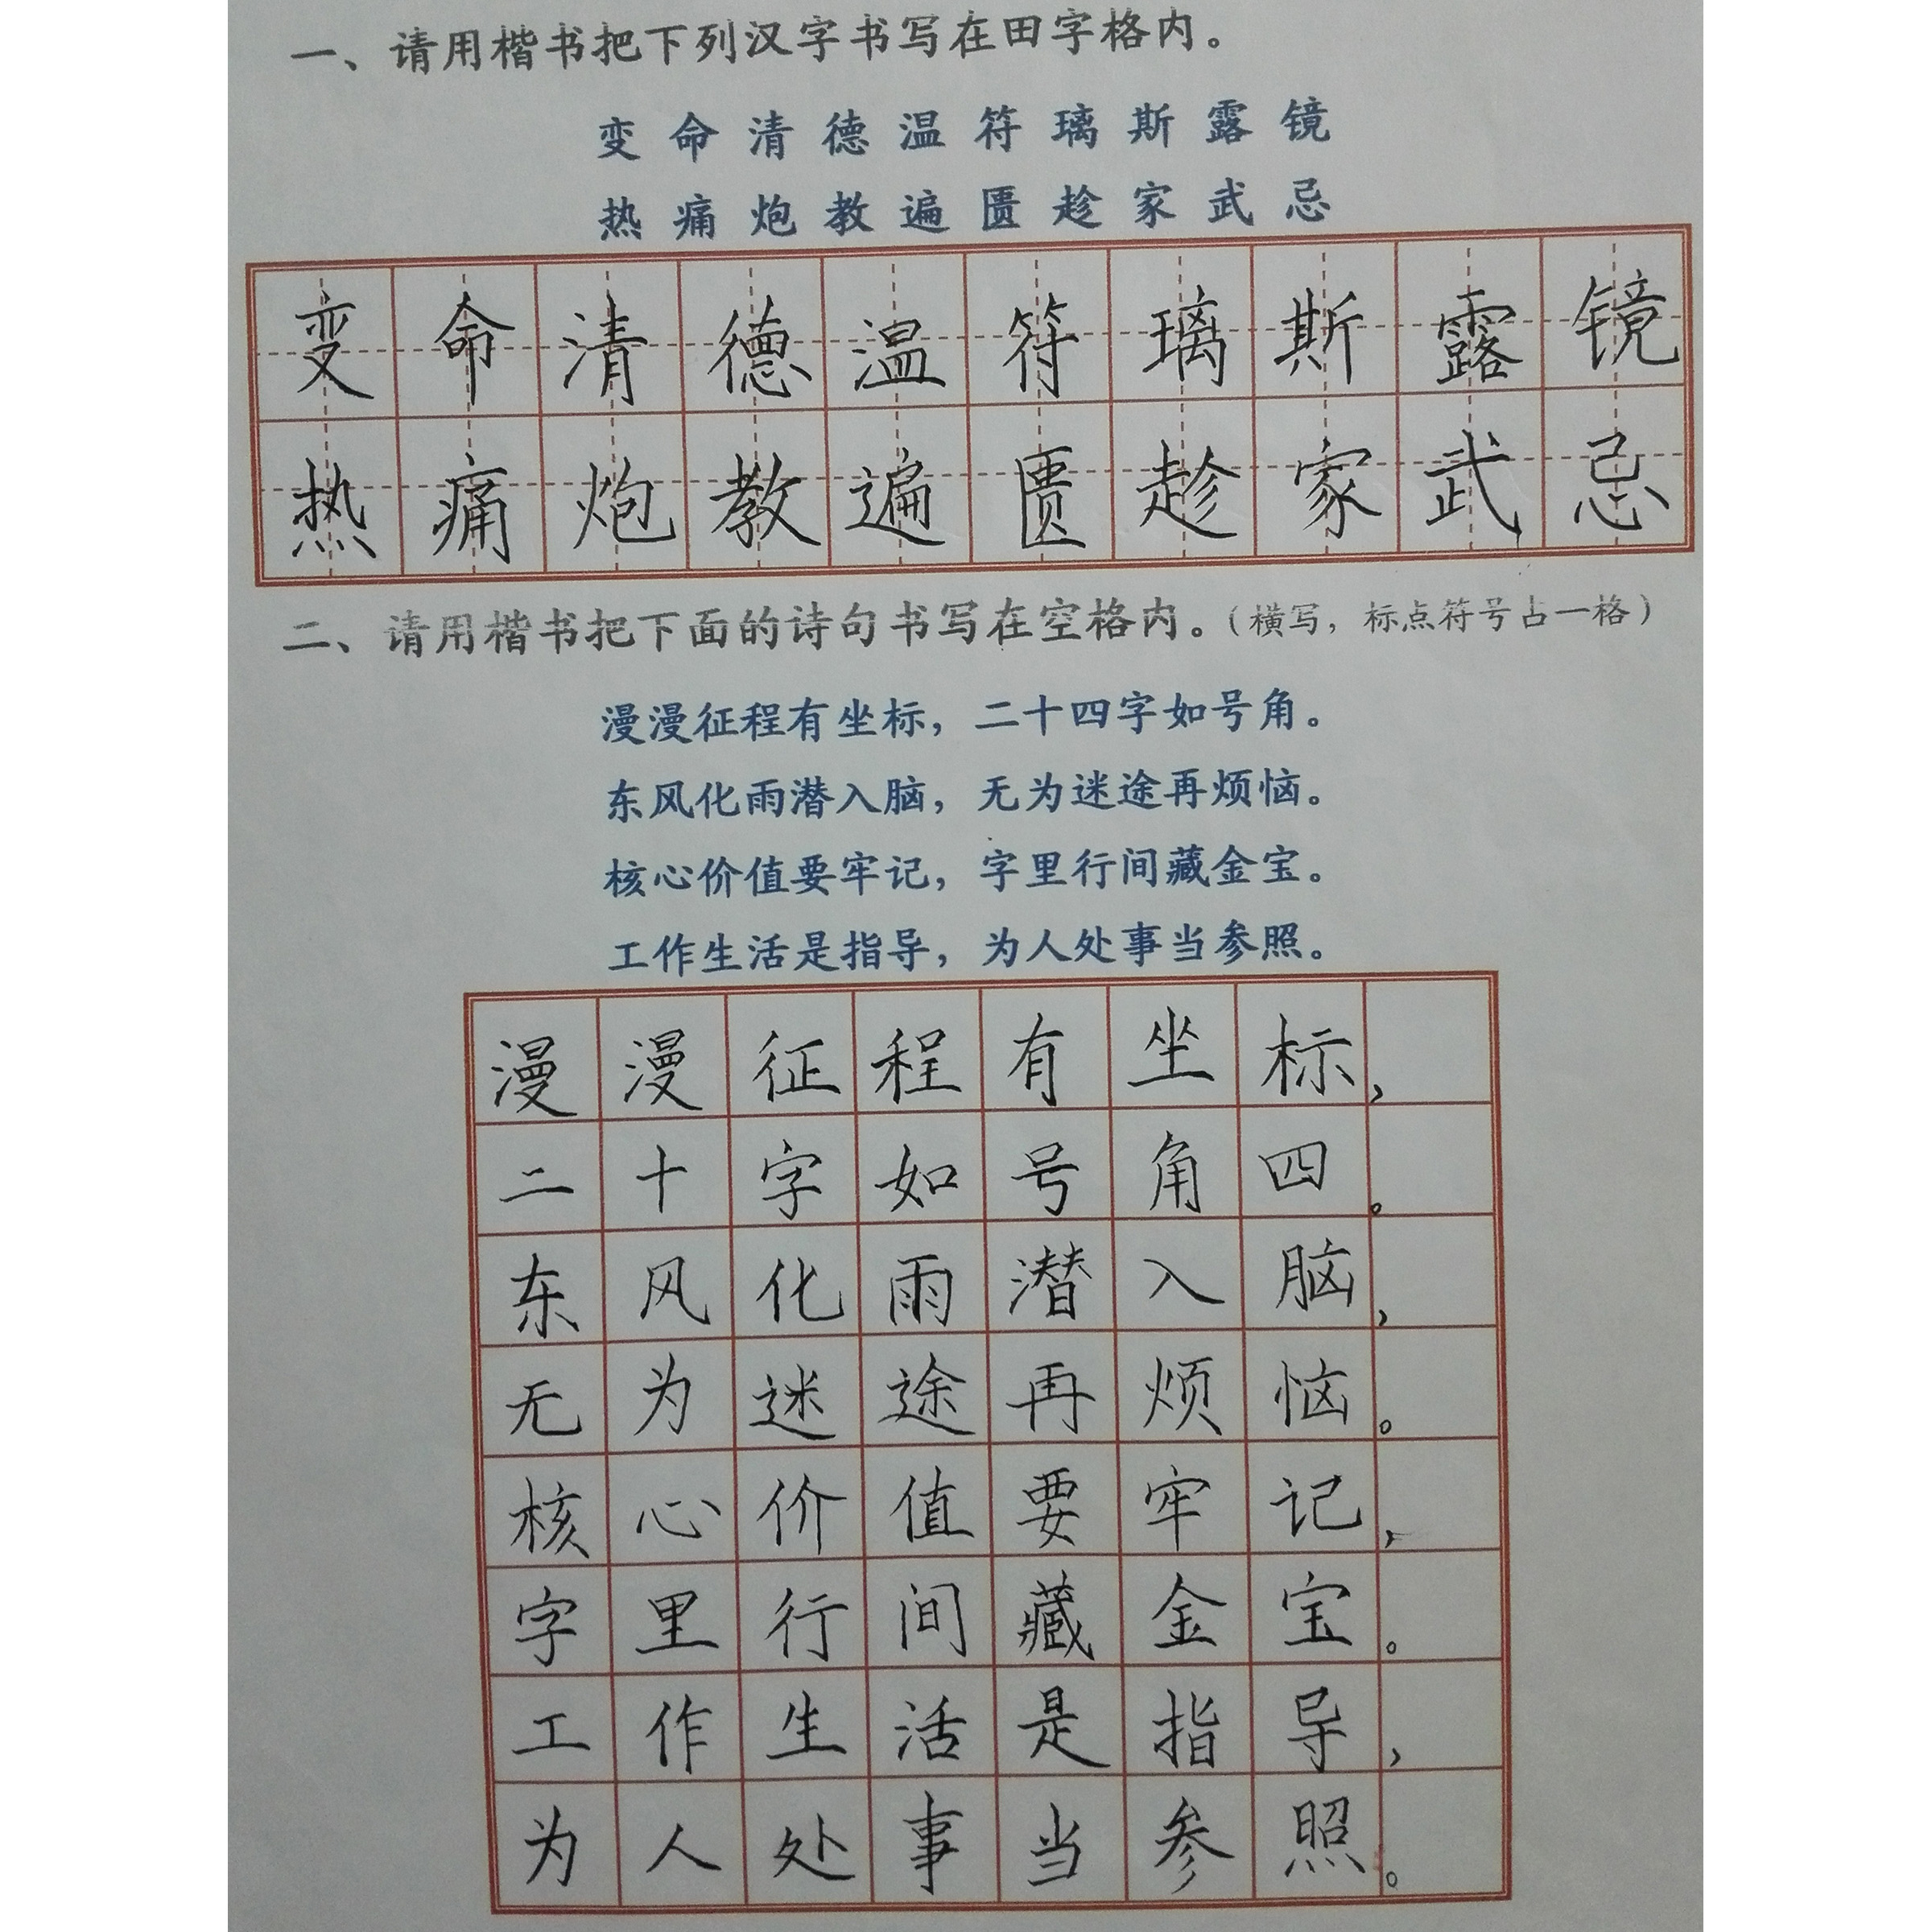 一、请用楷书把下列汉字书写在田字格内。
变 命 清 德 温 符 璃 斯 露 镜
热 痛 炮 教 遍 匮 趁 家 武 忌
变 命 清 德 温 符 璃 斯 露 镜
热 痛 炮 教 遍 匮 趁 家 武 忌
二、请用楷书把下面的诗句书写在空格内。（横写，标点符号占一格）
漫漫征程有坐标，二十四字如号角。
东风化雨潜入脑，无为迷途再烦恼。
核心价值要牢记，字里行间藏金宝。
工作生活是指导，为人处事当参照。
漫漫征程有坐标，
二十字如号角四。
东风化雨潜入脑，
无为迷途再烦恼。
核心价值要牢记，
字里行间藏金宝。
工作生活是指导，
为人处事当参照。